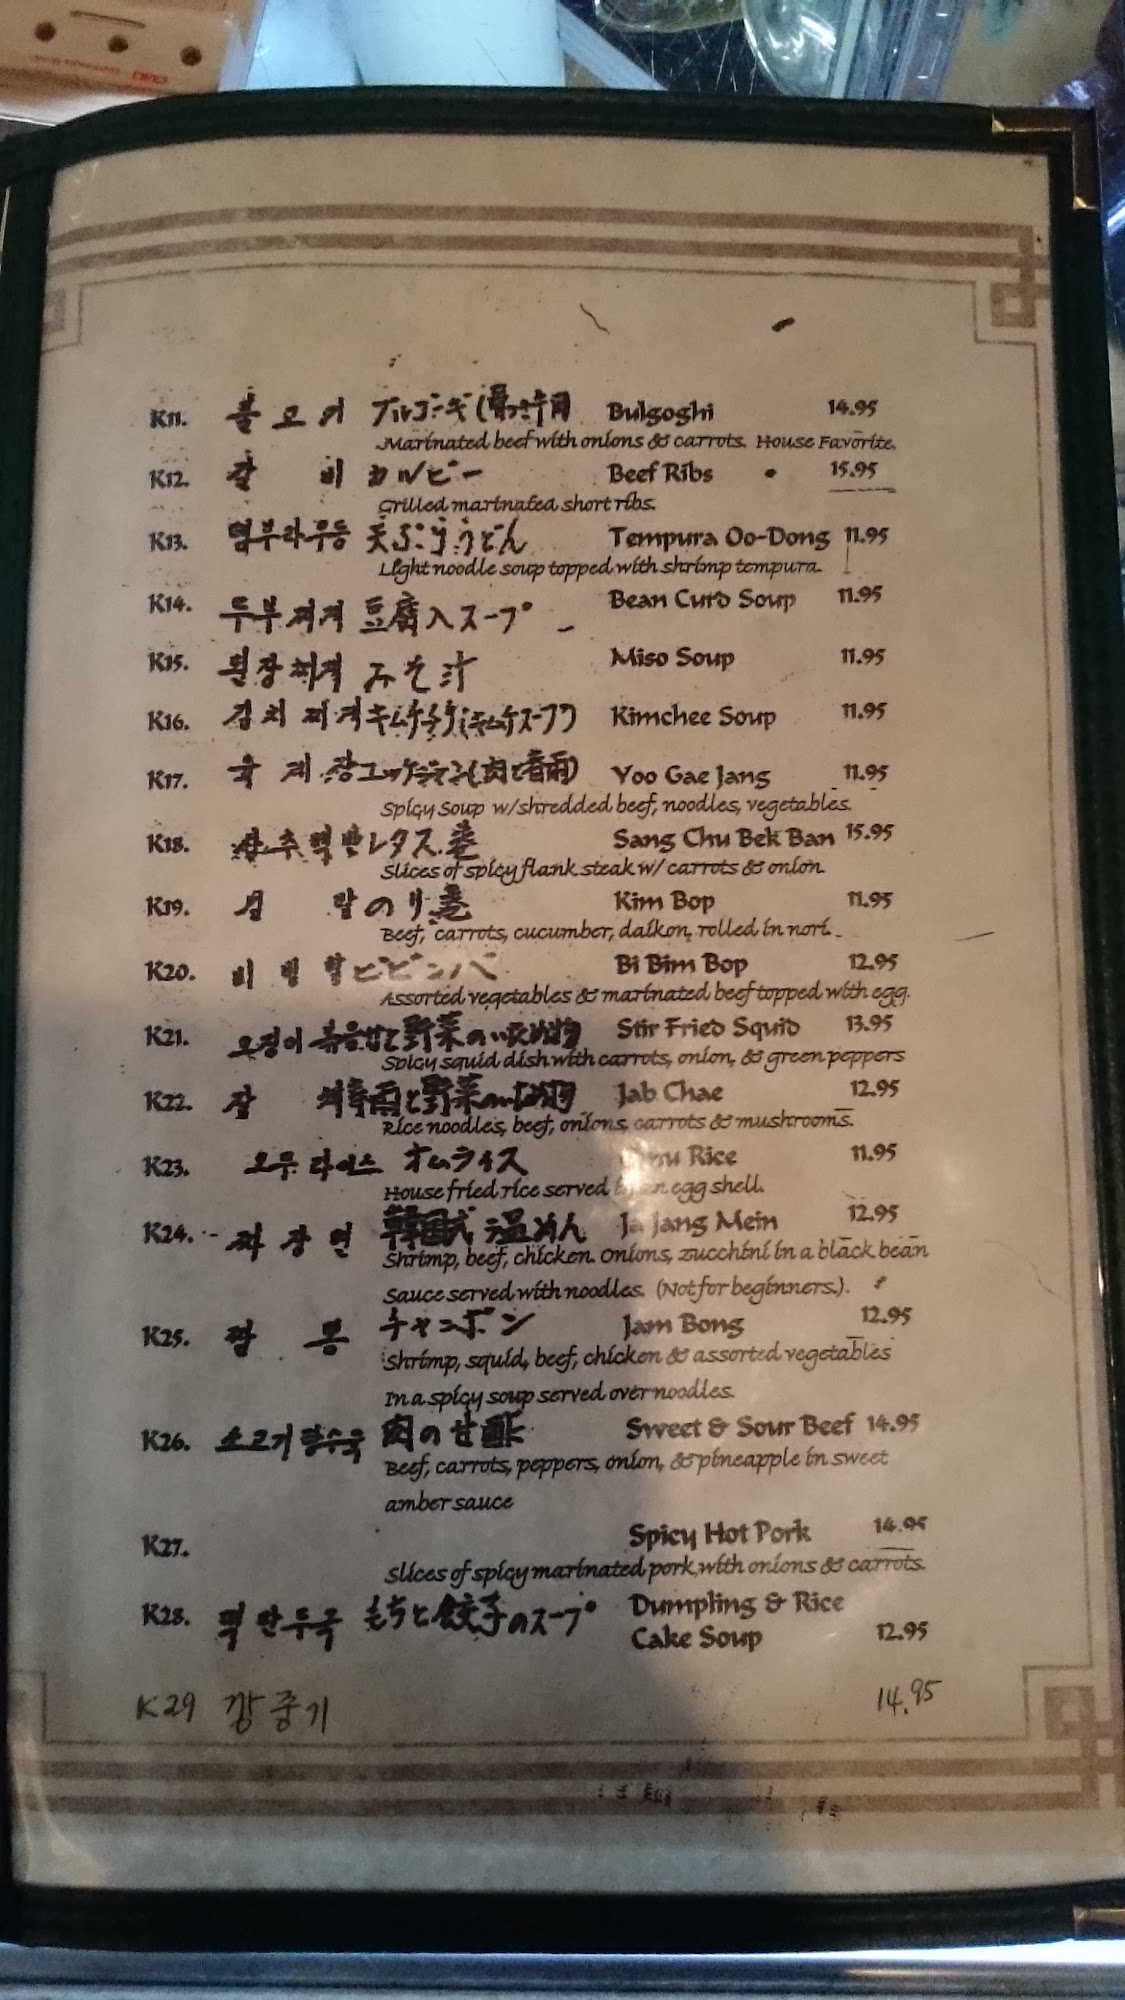 K11. 불 고 기 Bulgoghi 14.95
Marinated beef with onions & carrots. House Favorite.
K12. 갈 비 カルビー Beef Ribs 15.95
Grilled marinated short ribs.
K13. 뎀부라우동 天ぷらうどん Tempura Oo-Dong 11.95
Light noodle soup topped with shrimp tempura.
K14. 두부찌게 豆腐入スープ Bean Curd Soup 11.95
K15. 된장찌게 みそ汁 Miso Soup 11.95
K16. 김치찌게 Kimchee Soup 11.95
K17. 육 게 장 Yoo Gae Jang 11.95
Spicy Soup w/shredded beef, noodles, vegetables.
K18. 상추백반 レタス巻 Sang Chu Bek Ban 15.95
Slices of spicy flank steak w/ carrots & onion
K19. 김 밥 のり巻 Kim Bop 11.95
Beef, carrots, cucumber, daikon, rolled in nori.
K20. 비 빔 밥 ビビンバ Bi Bim Bop 12.95
Assorted vegetables & marinated beef topped with egg.
K21. 오징어볶음 Stir Fried Squid 13.95
Spicy squid dish with carrots, onion, & green peppers
K22. 잡 채 Jab Chae 12.95
Rice noodles, beef, onions, carrots & mushrooms.
K23. 오무라이스 オムライス Rice 11.95
House fried rice served egg shell.
K24. 짜 장 면 Ja Jang Mein 12.95
Shrimp, beef, chicken. Onions, zucchini in a black bean
Sauce served with noodles. (Not for beginners.).
K25. 짬 뽕 チャンポン Jam Bong 12.95
Shrimp, squid, beef, chicken & assorted vegetables
In a spicy soup served over noodles.
K26. 소고기탕수육 肉の甘酢 Sweet & Sour Beef 14.95
Beef, carrots, peppers, onion, & pineapple in sweet
amber sauce
K27. Spicy Hot Pork 14.95
Slices of spicy marinated pork, with onions & carrots.
K28. 떡만두국 もちと餃子のスープ Dumpling & Rice
Cake Soup 12.95
K29 깡중기 14.95